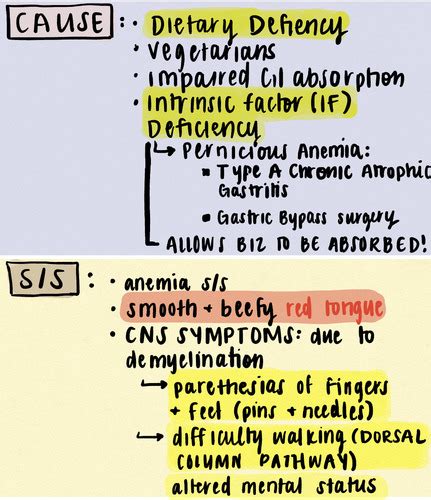 CAUSE : • Dietary Defiency
• Vegetarians
• impaired GI absorption
• intrinsic factor (IF)
Deficiency
↳ Pernicious Anemia:
▪ Type A Chronic Atrophic
Gastritis
▪ Gastric Bypass surgery
ALLOWS B12 TO BE ABSORBED!
S/S : • anemia s/s
• smooth + beefy red tongue
• CNS SYMPTOMS: due to
demyelination
↳ parethesias of fingers
+ feet (pins + needles)
↳ difficulty walking (DORSAL
COLUMN PATHWAY)
altered mental status